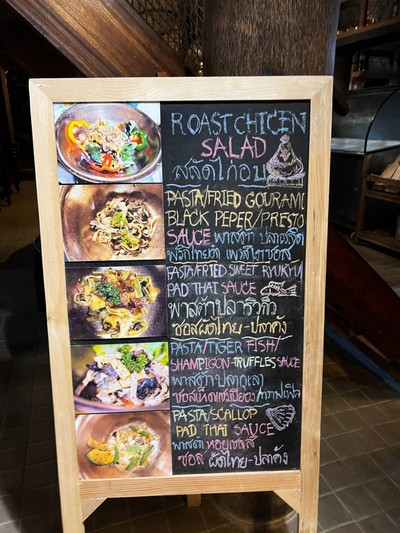 ROAST CHICEN
SALAD
สลัดไก่อบ
PASTA/FRIED GOURAMI
BLACK PEPER/PRESTO
SAUCE พาสต้า ปลาสลิด
พริกไทยดำ เพรสโตซอส
PASTA/FRIED SWEET RYUKYU
PAD THAI SAUCE
พาสต้าปลาริวกิว
ซอสผัดไทย-ปลาคัง
PASTA/TIGER FISH/
SHAMPIGON-TRUFFLES SAUCE
พาสต้าปลากุเลา
ซอสเห็ดแชมปิยอง/ทรัฟเฟิล
PASTA/SCALLOP
PAD THAI SAUCE
พาสต้า หอยเชลล์
ซอส ผัดไทย-ปลาคัง